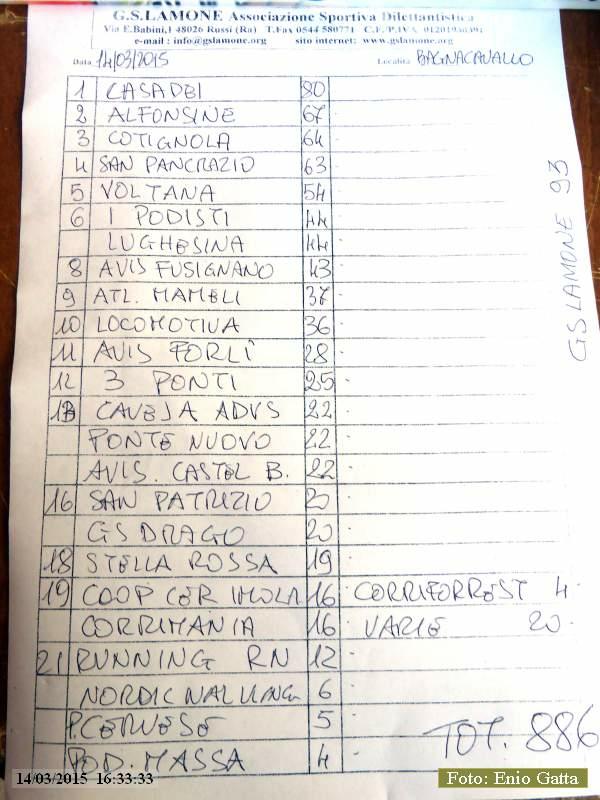 G.S.LAMONE Associazione Sportiva Dilettantistica
Via E.Babini,1 48026 Russi (Ra) T.Fax 0544 580771 C.F./P.IVA
e-mail : info@gslamone.org sito internet: www.gslamone.org
Data 14/03/2015 Località BAGNACAVALLO
1 CASADEI 80
2 ALFONSINE 67
3 COTIGNOLA 64
4 SAN PANCRAZIO 63
5 VOLTANA 54
6 I PODISTI 44
LUGHESINA 44
8 AVIS FUSIGNANO 43
9 ATL. MAMELI 37
10 LOCOMOTIVA 36
11 AVIS FORLÌ 28
12 3 PONTI 25
13 CAVEJA ADVS 22
PONTE NUOVO 22
AVIS. CASTEL B. 22
16 SAN PATRIZIO 20
GS DRAGO 20
18 STELLA ROSSA 19
19 COOP CER IMOLA 16 CORRIFORREST 4
CORRIMANIA 16 VARIE 20
21 RUNNING RN 12
NORDIC 6
P.CERVESE 5
POD. MASSA 4
TOT. 886
GS LAMONE 93
14/03/2015 16:33:33
Foto: Enio Gatta